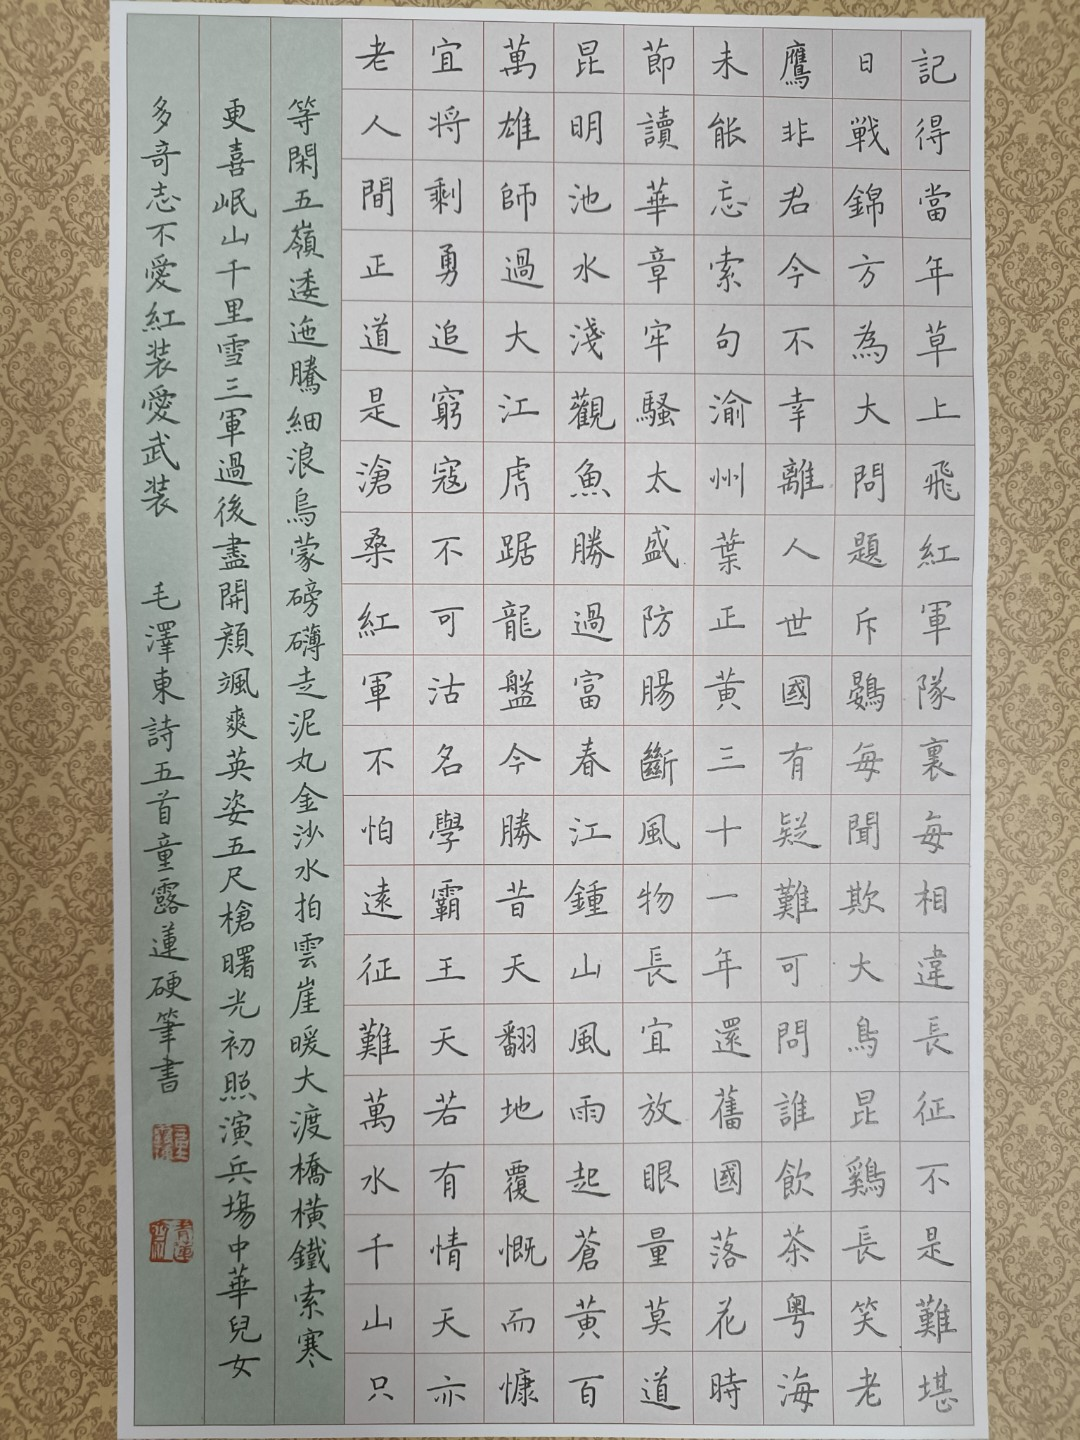 記得當年草上飛紅軍隊裏每相違長征不是難堪
日戰錦方為大問題斥鷃每聞欺大鳥昆鷄長笑老
鷹非君今不幸離人世國有疑難可問誰飲茶粤海
未能忘索句渝州葉正黃三十一年還舊國落花時
節讀華章牢騷太盛防腸斷風物長宜放眼量莫道
昆明池水淺觀魚勝過富春江鍾山風雨起蒼黃百
萬雄師過大江虎踞龍盤今勝昔天翻地覆慨而慷
宜將剩勇追窮寇不可沽名學霸王天若有情天亦
老人間正道是滄桑紅軍不怕遠征難萬水千山只
等閑五嶺逶迤騰細浪烏蒙磅礴走泥丸金沙水拍雲崖暖大渡橋橫鐵索寒
更喜岷山千里雪三軍過後盡開顏颯爽英姿五尺槍曙光初照演兵場中華兒女
多奇志不愛紅裝愛武裝 毛澤東詩五首童露蓮硬筆書